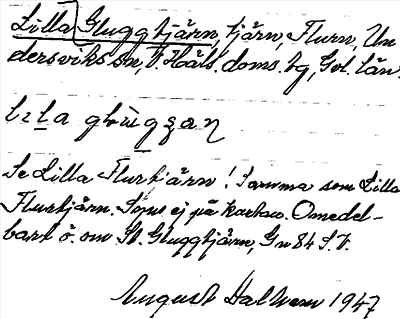 Lilla Gluggtjärn, tjärn, Flurn, Un
dersviks sn, V. Häls. doms. bg, Gvl. län.
Se Lilla Flurtjärn! Samma som Lilla
Flurtjärn. Synes ej på kartan. Omedel-
bart ö. om St. Gluggtjärn, Gu 84 S.V.
August Hallner 1947